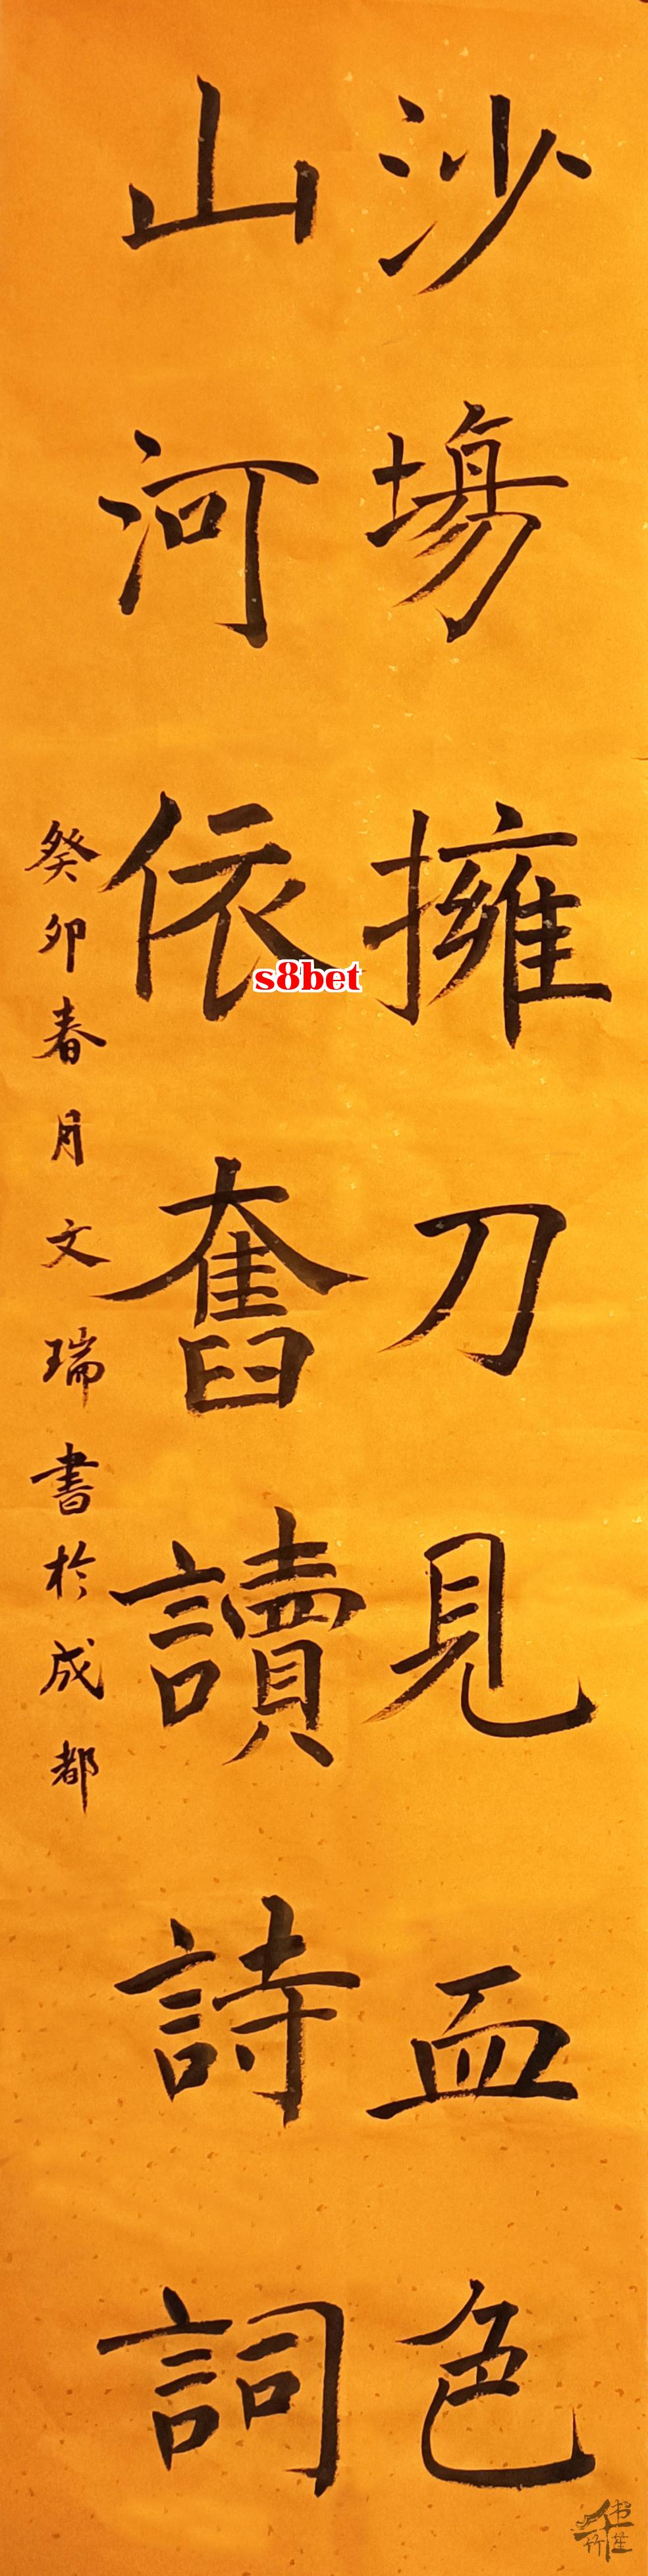 沙場擁刀見血色
山河依舊讀詩詞
癸卯春月文瑞書於成都
s8bet